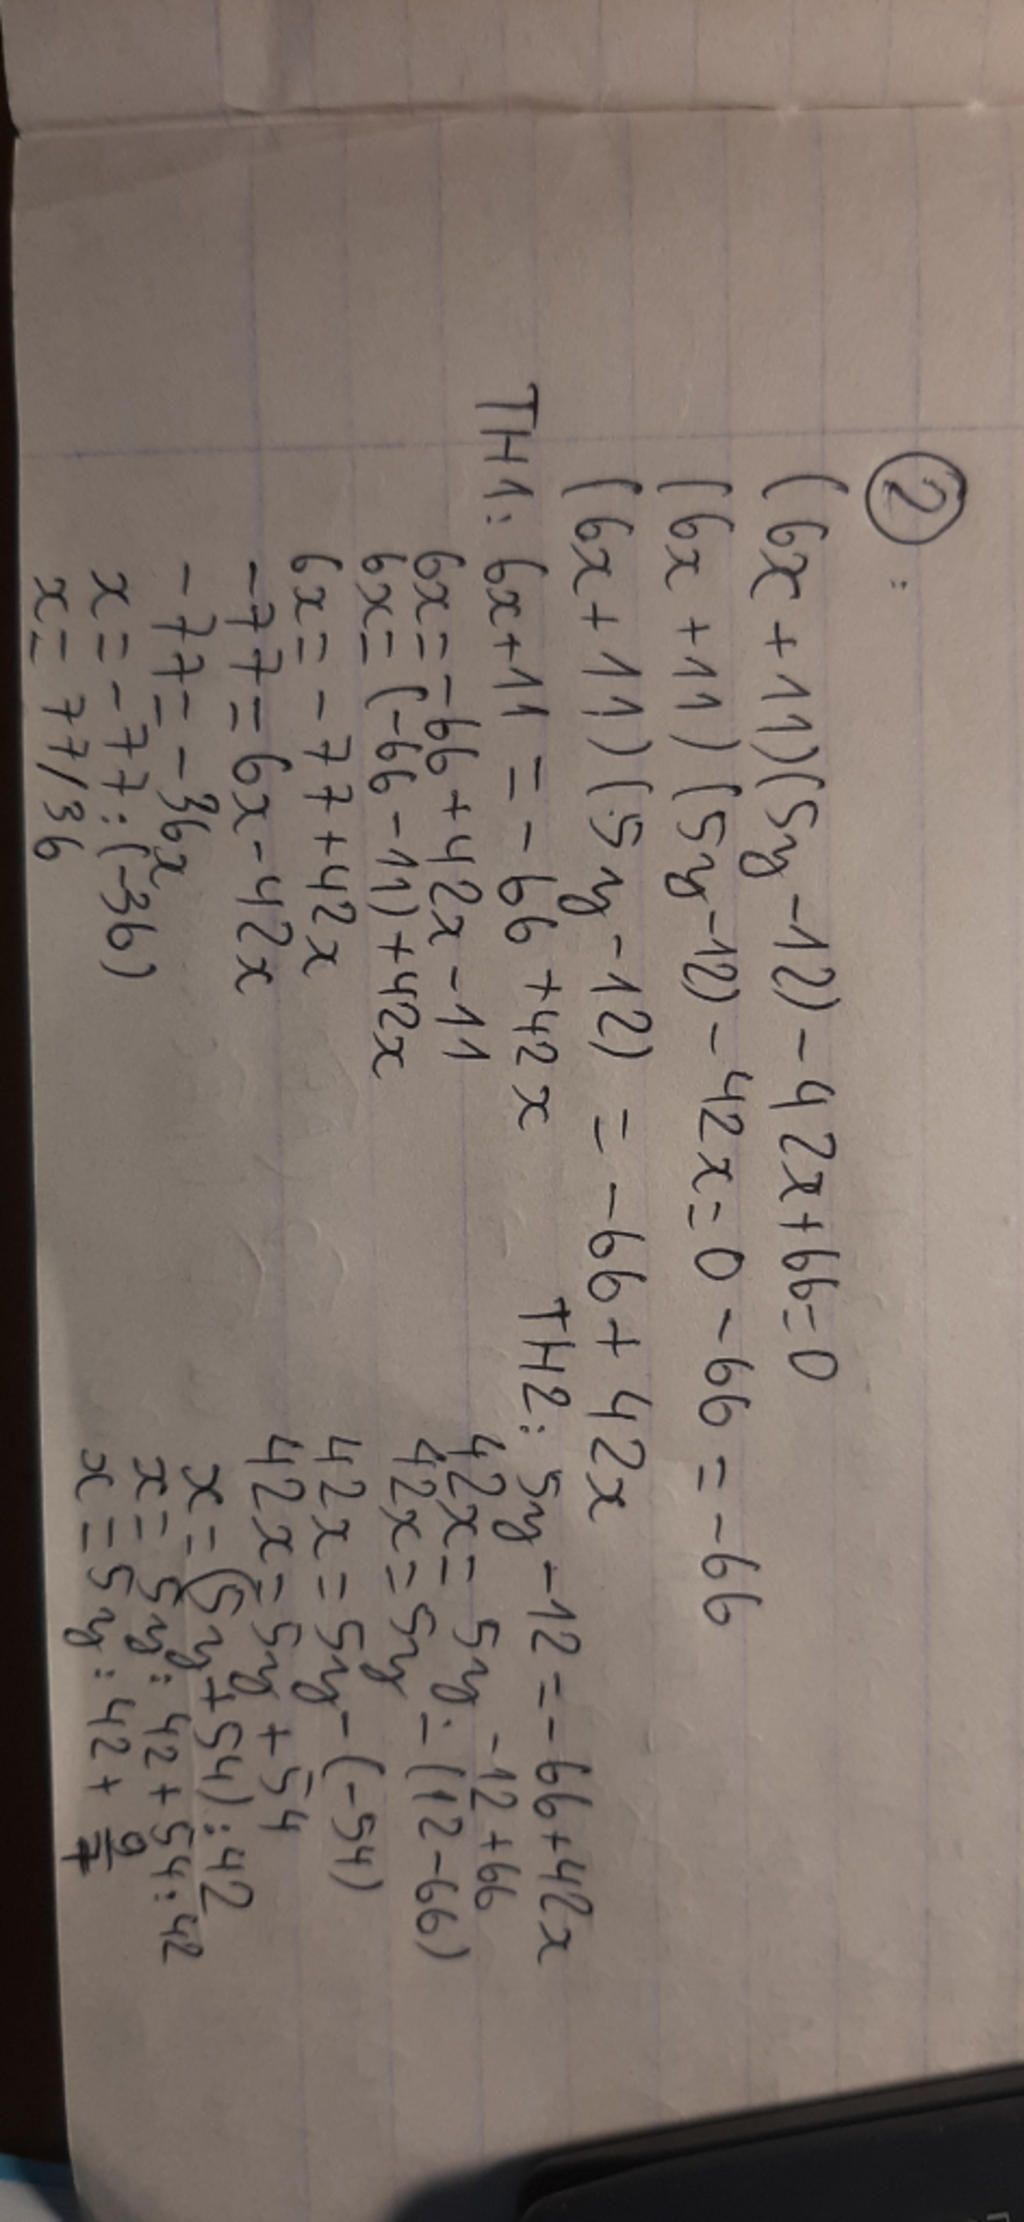 ② :
(6x+11)(5y-12)-42x+66=0
(6x+11)(5y-12)-42x=0-66=-66
(6x+11)(5y-12)=-66+42x
TH1: 6x+11=-66+42x
6x=-66+42x-11
6x=(-66-11)+42x
6x=-77+42x
-77=6x-42x
-77=-36x
x=-77:(-36)
x=77/36
TH2: 5y-12=-66+42x
42x=5y-12+66
42x=5y-(12-66)
42x=5y-(-54)
42x=5y+54
x=(5y+54):42
x=5y:42+54:42
x=5y:42+9/7